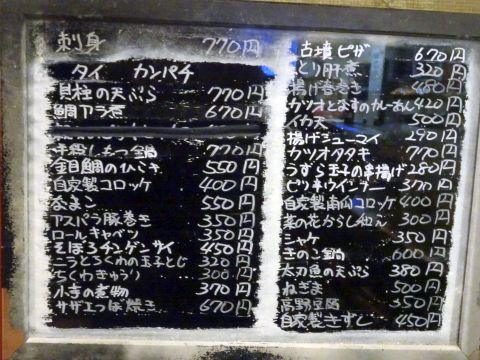 刺身 770円
タイ カンパチ
貝柱の天ぷら 770円
鯛アラ煮 670円
もつ鍋 770円
金目鯛の 550円
自家製コロッケ 400円
550円
アスパラ豚巻き 350円
ロールキャベツ 350円
そぼろチンゲンサイ 450円
ニラとちくわの玉子とじ 320円
ちくわきゅうり 300円
小芋の煮物 370円
サザエつぼ焼き 670円
古墳ピザ 670円
とり肝煮 320円
揚げ春巻き 480円
カツオとなすのカレーあん 420円
イカ天 500円
揚げシューマイ 290円
カツオタタキ 770円
うずら玉子の串揚げ 280円
ピリ辛ウインナー 370円
自家製南山コロッケ 400円
菜の花からし和え 300円
シャケ 350円
きのこ鍋 600円
太刀魚の天ぷら 380円
ねぎま 500円
高野豆腐 350円
自家製きずし 450円